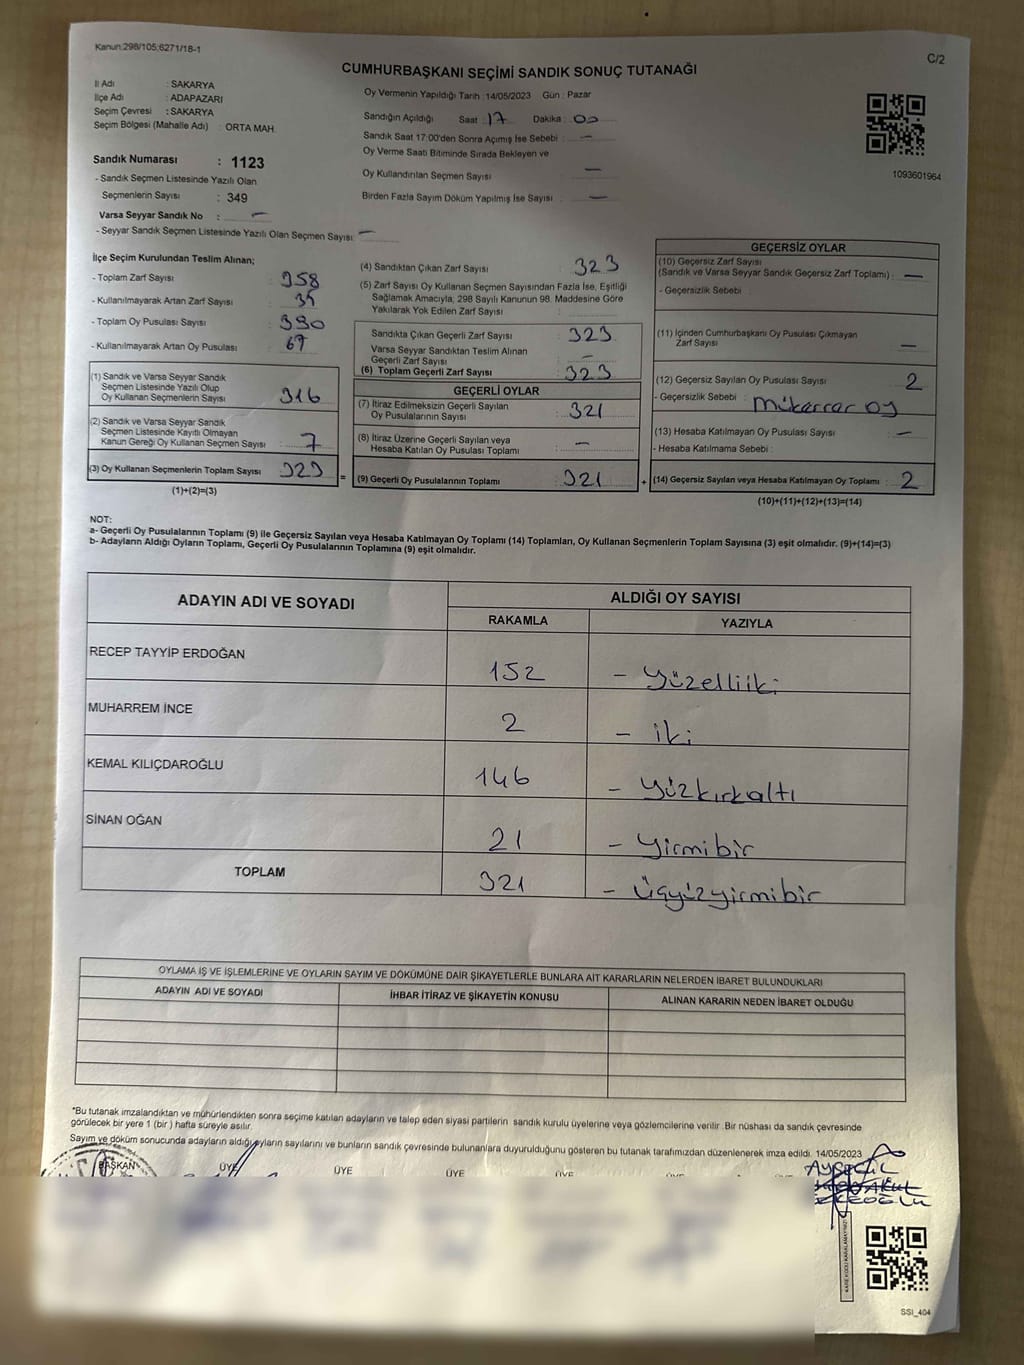 Kanun:298/105;6271/18-1
C/2
CUMHURBAŞKANI SEÇİMİ SANDIK SONUÇ TUTANAĞI
İl Adı : SAKARYA
İlçe Adı : ADAPAZARI
Seçim Çevresi : SAKARYA
Seçim Bölgesi (Mahalle Adı) : ORTA MAH.
Sandık Numarası : 1123
- Sandık Seçmen Listesinde Yazılı Olan
Seçmenlerin Sayısı : 349
Varsa Seyyar Sandık No : —
- Seyyar Sandık Seçmen Listesinde Yazılı Olan Seçmen Sayısı: —
Oy Vermenin Yapıldığı Tarih :14/05/2023 Gün : Pazar
Sandığın Açıldığı Saat : 17 Dakika : 00
Sandık Saat 17:00'den Sonra Açımış İse Sebebi : —
Oy Verme Saati Bitiminde Sırada Bekleyen ve
Oy Kullandırılan Seçmen Sayısı —
Birden Fazla Sayım Döküm Yapılmış İse Sayısı : —
1093601964
İlçe Seçim Kurulundan Teslim Alınan;
- Toplam Zarf Sayısı : 358
- Kullanılmayarak Artan Zarf Sayısı : 35
- Toplam Oy Pusulası Sayısı : 390
- Kullanılmayarak Artan Oy Pusulası : 67
(1) Sandık ve Varsa Seyyar Sandık
Seçmen Listesinde Yazılı Olup
Oy Kullanan Seçmenlerin Sayısı : 316
(2) Sandık ve Varsa Seyyar Sandık
Seçmen Listesinde Kayıtlı Olmayan
Kanun Gereği Oy Kullanan Seçmen Sayısı : 7
(3) Oy Kullanan Seçmenlerin Toplam Sayısı : 323
(1)+(2)=(3)
(4) Sandıktan Çıkan Zarf Sayısı : 323
(5) Zarf Sayısı Oy Kullanan Seçmen Sayısından Fazla İse, Eşitliği
Sağlamak Amacıyla, 298 Sayılı Kanunun 98. Maddesine Göre
Yakılarak Yok Edilen Zarf Sayısı :
Sandıkta Çıkan Geçerli Zarf Sayısı : 323
Varsa Seyyar Sandıktan Teslim Alınan
Geçerli Zarf Sayısı : —
(6) Toplam Geçerli Zarf Sayısı : 323
GEÇERLİ OYLAR
(7) İtiraz Edilmeksizin Geçerli Sayılan
Oy Pusulalarının Sayısı : 321
(8) İtiraz Üzerine Geçerli Sayılan veya
Hesaba Katılan Oy Pusulası Toplamı : —
= (9) Geçerli Oy Pusulalarının Toplamı : 321
GEÇERSİZ OYLAR
(10) Geçersiz Zarf Sayısı
(Sandık ve Varsa Seyyar Sandık Geçersiz Zarf Toplamı) : —
- Geçersizlik Sebebi :
(11) İçinden Cumhurbaşkanı Oy Pusulası Çıkmayan
Zarf Sayısı : —
(12) Geçersiz Sayılan Oy Pusulası Sayısı : 2
- Geçersizlik Sebebi : mükerrer oy
(13) Hesaba Katılmayan Oy Pusulası Sayısı : —
- Hesaba Katılmama Sebebi :
+ (14) Geçersiz Sayılan veya Hesaba Katılmayan Oy Toplamı : 2
(10)+(11)+(12)+(13)=(14)
NOT:
a- Geçerli Oy Pusulalarının Toplamı (9) ile Geçersiz Sayılan veya Hesaba Katılmayan Oy Toplamı (14) Toplamları, Oy Kullanan Seçmenlerin Toplam Sayısına (3) eşit olmalıdır. (9)+(14)=(3)
b- Adayların Aldığı Oyların Toplamı, Geçerli Oy Pusulalarının Toplamına (9) eşit olmalıdır.
ADAYIN ADI VE SOYADI
ALDIĞI OY SAYISI
RAKAMLA YAZIYLA
RECEP TAYYİP ERDOĞAN 152 - yüzelliiki
MUHARREM İNCE 2 - iki
KEMAL KILIÇDAROĞLU 146 - yüzkırkaltı
SİNAN OĞAN 21 - yirmibir
TOPLAM 321 - üçyüzyirmibir
OYLAMA İŞ VE İŞLEMLERİNE VE OYLARIN SAYIM VE DÖKÜMÜNE DAİR ŞİKAYETLERLE BUNLARA AİT KARARLARIN NELERDEN İBARET BULUNDUKLARI
ADAYIN ADI VE SOYADI İHBAR İTİRAZ VE ŞİKAYETİN KONUSU ALINAN KARARIN NEDEN İBARET OLDUĞU
*Bu tutanak imzalandıktan ve mühürlendikten sonra seçime katılan adayların ve talep eden siyasi partilerin sandık kurulu üyelerine veya gözlemcilerine verilir. Bir nüshası da sandık çevresinde
görülecek bir yere 1 (bir ) hafta süreyle asılır.
Sayım ve döküm sonucunda adayların aldığı oyların sayılarını ve bunların sandık çevresinde bulunanlara duyurulduğunu gösteren bu tutanak tarafımızdan düzenlenerek imza edildi. 14/05/2023
BAŞKAN ÜYE ÜYE ÜYE ÜYE
SSI_404